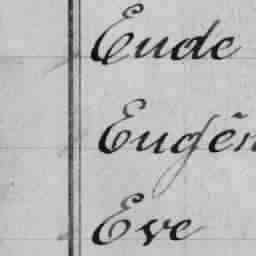 Eude
Eugên
Eve